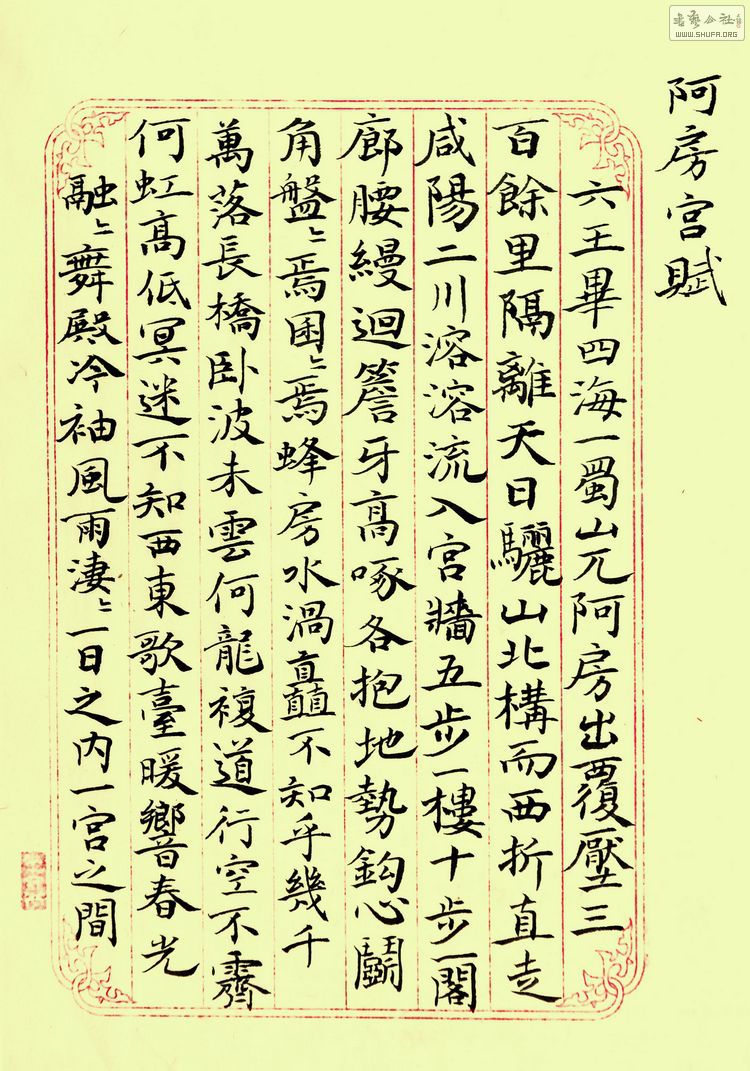 書藝公社
WWW.SHUFA.ORG
阿房宮賦
六王畢四海一蜀山兀阿房出覆壓三
百餘里隔離天日驪山北構而西折直走
咸陽二川溶溶流入宮牆五步一樓十步一閣
廊腰縵迴簷牙高啄各抱地勢鈎心鬭
角盤〻焉囷〻焉蜂房水渦矗不知乎幾千
萬落長橋卧波未雲何龍複道行空不霽
何虹高低冥迷不知西東歌臺暖響春光
融〻舞殿冷袖風雨淒〻一日之内一宮之間